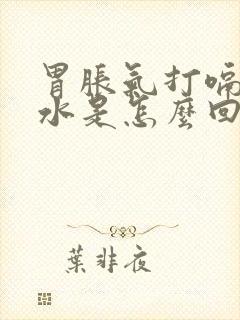 胃脹氣打嗝
水是怎麼回
葉非夜